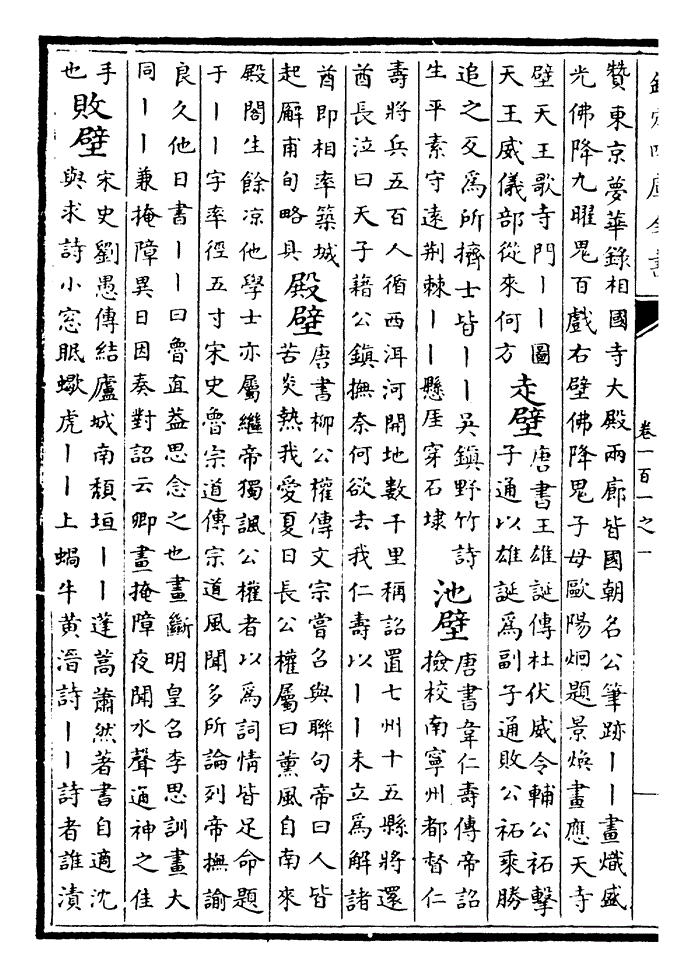 欽定四庫全書
卷一百一之一
贊東京夢華錄相國寺大殿兩廊皆國朝名公筆跡丨丨畫熾盛
光佛降九曜鬼百戲右壁佛降鬼子母歐陽炯題景煥畫應天寺
壁天王歌寺門丨丨圖
天王威儀部從來何方
走壁
唐書王雄誕傳杜伏威令輔公祏擊
子通以雄誕為副子通敗公祏乘勝
追之反為所擠士皆丨丨吳鎮野竹詩
生平素守遠荆棘丨丨懸厓穿石埭
池壁
唐書韋仁壽傳帝詔
檢校南寧州都督仁
壽將兵五百人循西洱河開地數千里稱詔置七州十五縣將還
酋長泣曰天子藉公鎮撫奈何欲去我仁壽以丨丨未立為解諸
酋即相率築城
起廨甫旬略具
殿壁
唐書柳公權傳文宗嘗召與聯句帝曰人皆
苦炎熱我愛夏日長公權屬曰薰風自南來
殿閣生餘凉他學士亦屬繼帝獨諷公權者以為詞情皆足命題
于丨丨字率徑五寸宋史魯宗道傳宗道風聞多所論列帝撫諭
良久他日書丨丨曰魯直蓋思念之也畫斷明皇召李思訓畫大
同丨丨兼掩障異日因奏對詔云卿畫掩障夜聞水聲通神之佳
手
也
敗壁
宋史劉愚傳結廬城南頹垣丨丨蓬蒿蕭然著書自適沈
與求詩小窓眠蠍虎丨丨上蝸牛黃溍詩丨丨詩者誰漬